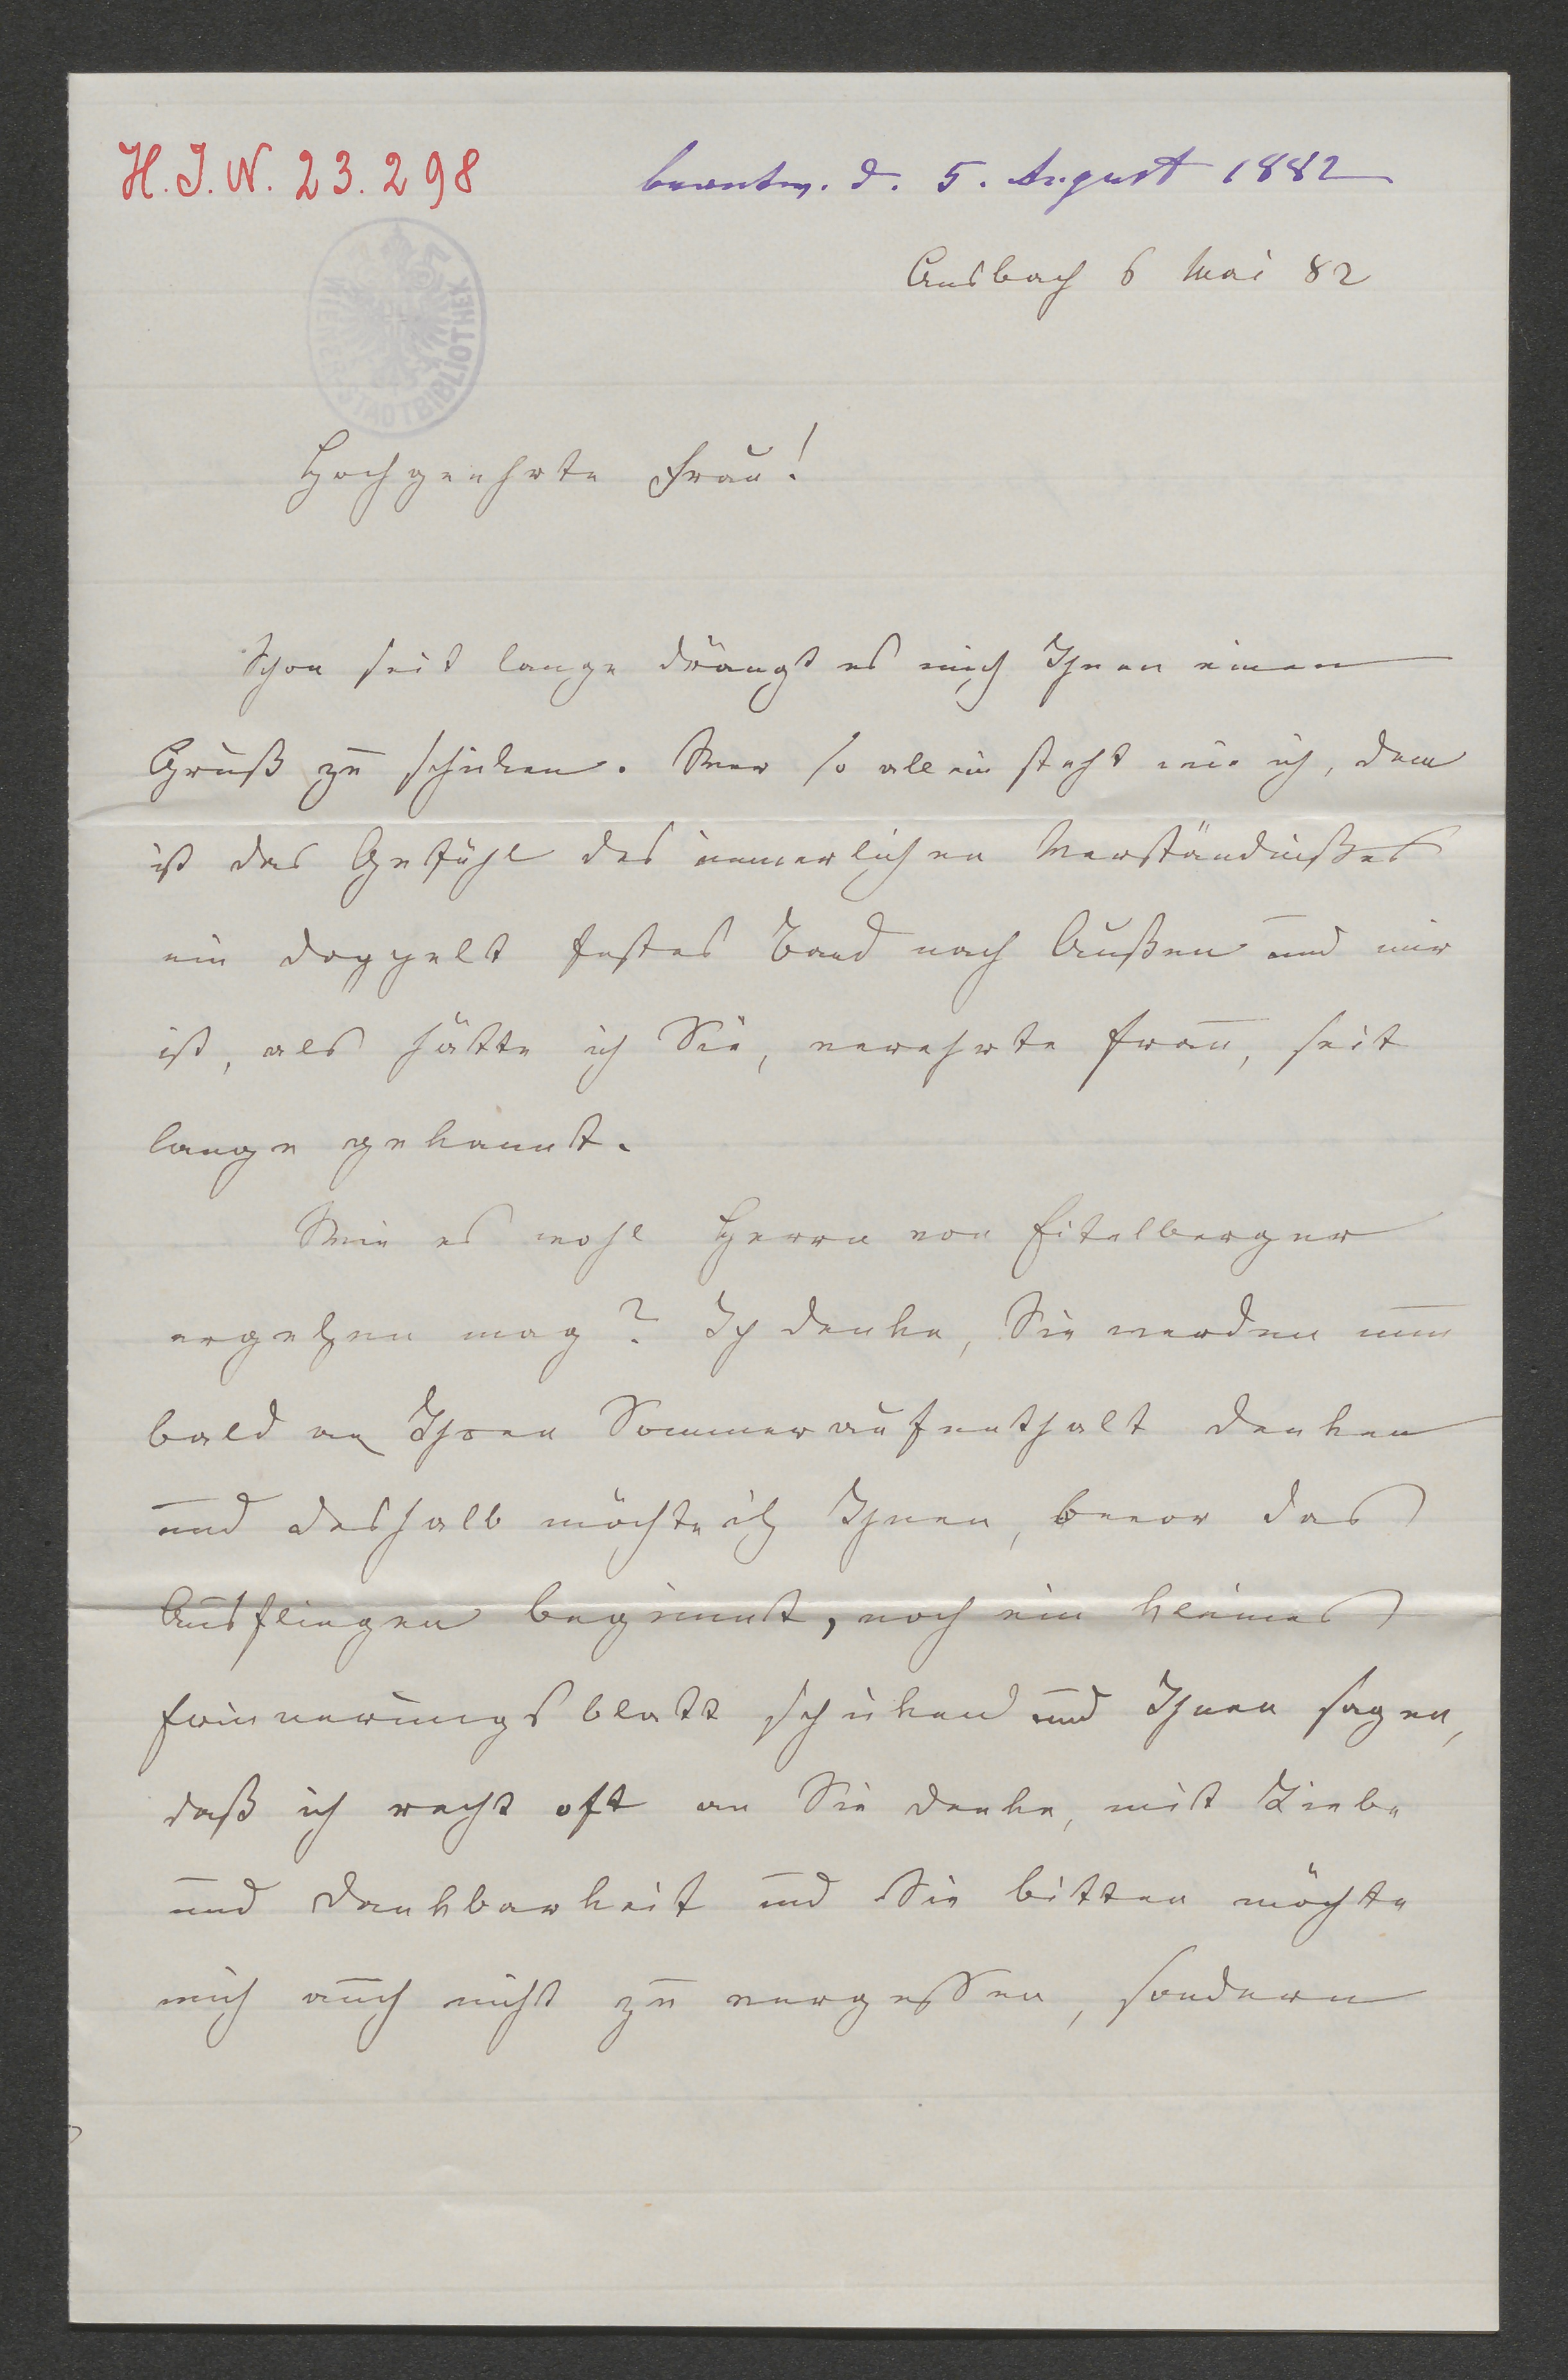 H.I.N. 23.298
beantw. d. 5. August 1882
WIENER STADTBIBLIOTHEK
Ansbach 6 Mai 82
Hochgeehrte Frau!
Schon seit lange drängt es mich Ihnen einen
Gruß zu schicken. Wer so allein steht wie ich, dem
ist das Gefühl des innerlichen Verständnißes
ein doppelt festes Band nach Außen und mir
ist, als hätte ich Sie, verehrte Frau, seit
lange gekannt.
Wie es wohl Herrn von Eitelberger
ergehen mag? Ich denke, Sie werden nun
bald an Ihren Sommeraufenthalt denken
und deshalb möchte ich Ihnen, bevor das
Ausfliegen beginnt, noch ein kleines
Erinnerungsblatt schicken und Ihnen sagen,
daß ich recht oft an Sie denke, mit Liebe
und Dankbarkeit und Sie bitten möchte
mich auch nicht zu vergessen, sondern